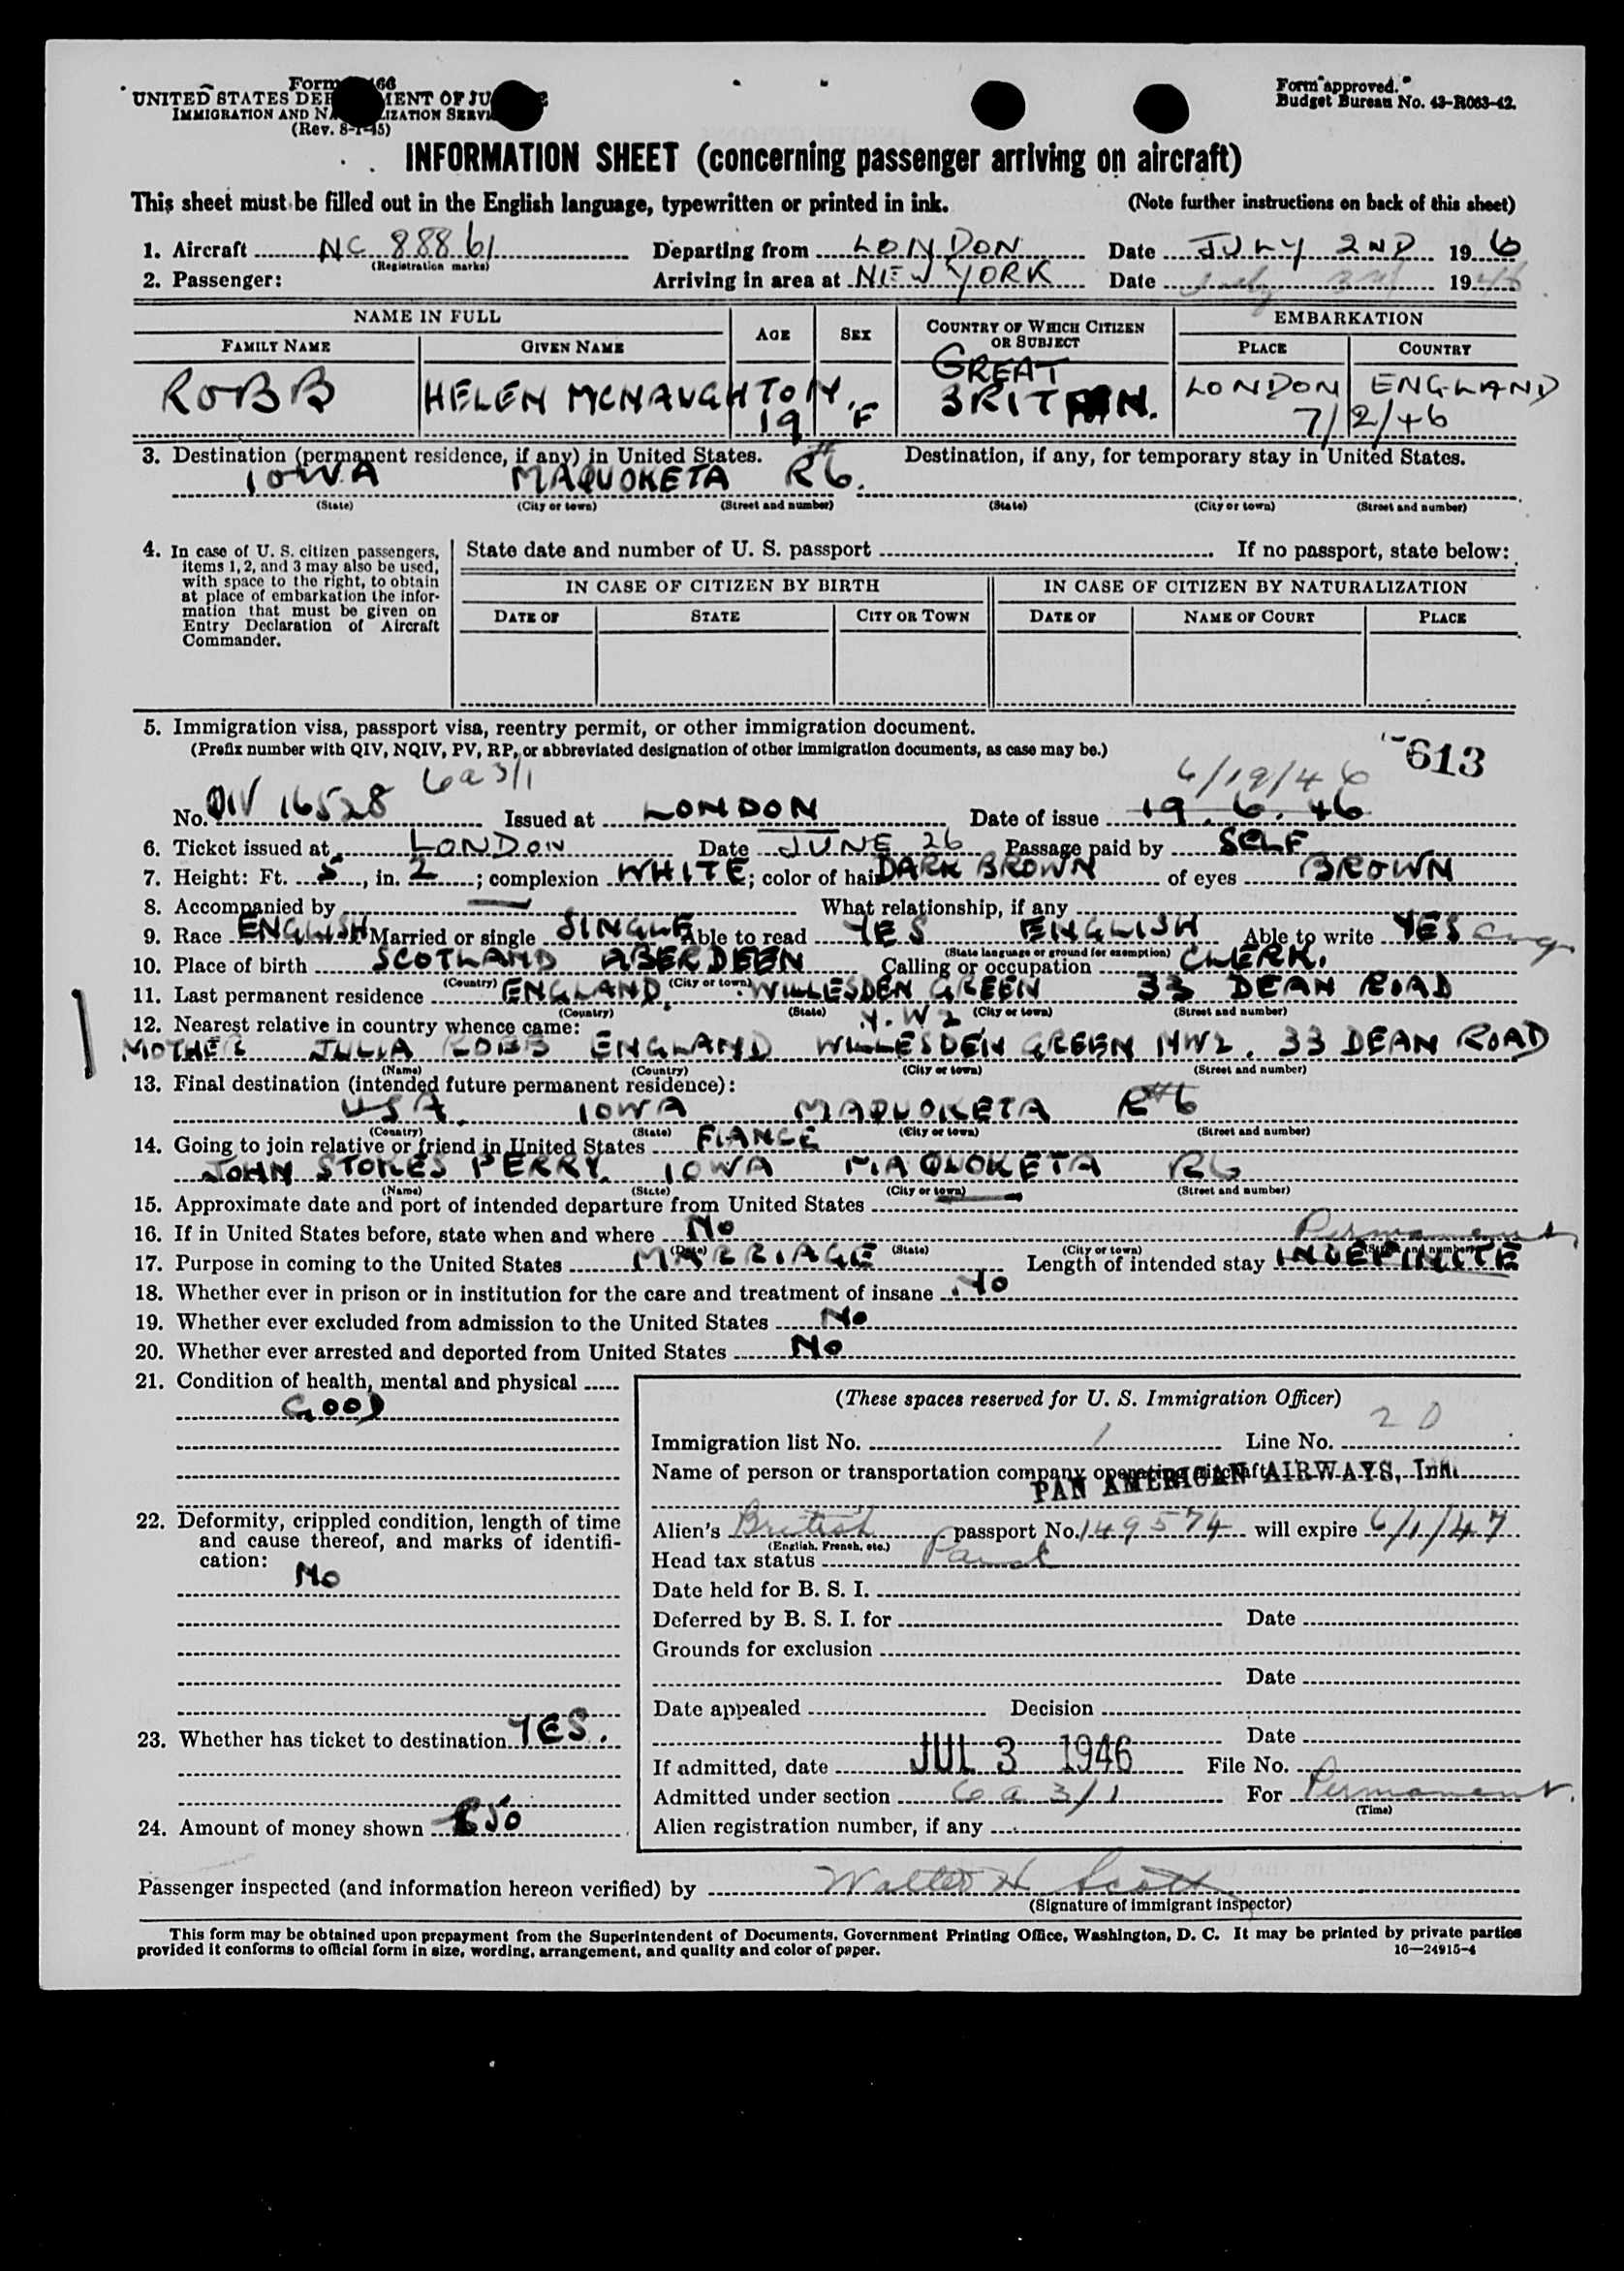 Form 466
UNITED STATES DEPARTMENT OF JUSTICE
IMMIGRATION AND NATURALIZATION SERVICE
(Rev. 8-1-45)
Form approved.
Budget Bureau No. 43-R063-42.
INFORMATION SHEET (concerning passenger arriving on aircraft)
This sheet must be filled out in the English language, typewritten or printed in ink. (Note further instructions on back of this sheet)
1. Aircraft NC 88861 Departing from LONDON Date JULY 2ND 19 6
(Registration marks)
2. Passenger: Arriving in area at NEW YORK Date July 3rd 19 46
NAME IN FULL AGE SEX COUNTRY OF WHICH CITIZEN OR SUBJECT EMBARKATION
FAMILY NAME GIVEN NAME PLACE COUNTRY
ROBB HELEN MCNAUGHTON 19 F GREAT BRITAIN. LONDON ENGLAND
7/2/46
3. Destination (permanent residence, if any) in United States. Destination, if any, for temporary stay in United States.
IOWA MAQUOKETA R#6.
(State) (City or town) (Street and number) (State) (City or town) (Street and number)
4. In case of U. S. citizen passengers, items 1, 2, and 3 may also be used, with space to the right, to obtain at place of embarkation the information that must be given on Entry Declaration of Aircraft Commander.
State date and number of U. S. passport If no passport, state below:
IN CASE OF CITIZEN BY BIRTH IN CASE OF CITIZEN BY NATURALIZATION
DATE OF STATE CITY OR TOWN DATE OF NAME OF COURT PLACE
5. Immigration visa, passport visa, reentry permit, or other immigration document.
(Prefix number with QIV, NQIV, PV, RP, or abbreviated designation of other immigration documents, as case may be.)
613
6a3/1 6/19/46
No. QIV 16528 Issued at LONDON Date of issue 19.6.46
6. Ticket issued at LONDON Date JUNE 26 Passage paid by SELF
7. Height: Ft. 5, in. 2; complexion WHITE; color of hair DARK BROWN of eyes BROWN
8. Accompanied by — What relationship, if any
9. Race ENGLISH Married or single SINGLE Able to read YES ENGLISH Able to write YES Eng
(State language or ground for exemption)
10. Place of birth SCOTLAND ABERDEEN Calling or occupation CLERK.
(Country) (City or town)
11. Last permanent residence ENGLAND. WILLESDEN GREEN 33 DEAN ROAD
(Country) (State) N.W2 (City or town) (Street and number)
12. Nearest relative in country whence came:
MOTHER JULIA ROBB ENGLAND WILLESDEN GREEN NW2. 33 DEAN ROAD
(Name) (Country) (City or town) (Street and number)
13. Final destination (intended future permanent residence):
USA. IOWA MAQUOKETA R#6
(Country) (State) (City or town) (Street and number)
14. Going to join relative or friend in United States FIANCE
JOHN STOKES PERRY. IOWA MAQUOKETA R6
(Name) (State) (City or town) (Street and number)
15. Approximate date and port of intended departure from United States —
16. If in United States before, state when and where No
(Date) (State) (City or town) (Street and number)
Permanent
17. Purpose in coming to the United States MARRIAGE Length of intended stay INDEFINITE
18. Whether ever in prison or in institution for the care and treatment of insane No
19. Whether ever excluded from admission to the United States No
20. Whether ever arrested and deported from United States No
21. Condition of health, mental and physical
GOOD
22. Deformity, crippled condition, length of time and cause thereof, and marks of identification:
No
23. Whether has ticket to destination YES.
24. Amount of money shown £50
(These spaces reserved for U. S. Immigration Officer)
Immigration list No. 1 Line No. 20
Name of person or transportation company operating aircraft PAN AMERICAN AIRWAYS, Inc.
Alien's British passport No. 149574 will expire 6/1/47
(English, French, etc.)
Head tax status Paid
Date held for B. S. I.
Deferred by B. S. I. for Date
Grounds for exclusion
Date
Date appealed Decision
Date
If admitted, date JUL 3 1946 File No.
Admitted under section 6a 3/1 For Permanent.
(Time)
Alien registration number, if any
Passenger inspected (and information hereon verified) by Walter H Scott
(Signature of immigrant inspector)
This form may be obtained upon prepayment from the Superintendent of Documents, Government Printing Office, Washington, D. C. It may be printed by private parties
provided it conforms to official form in size, wording, arrangement, and quality and color of paper. 16—24915-4